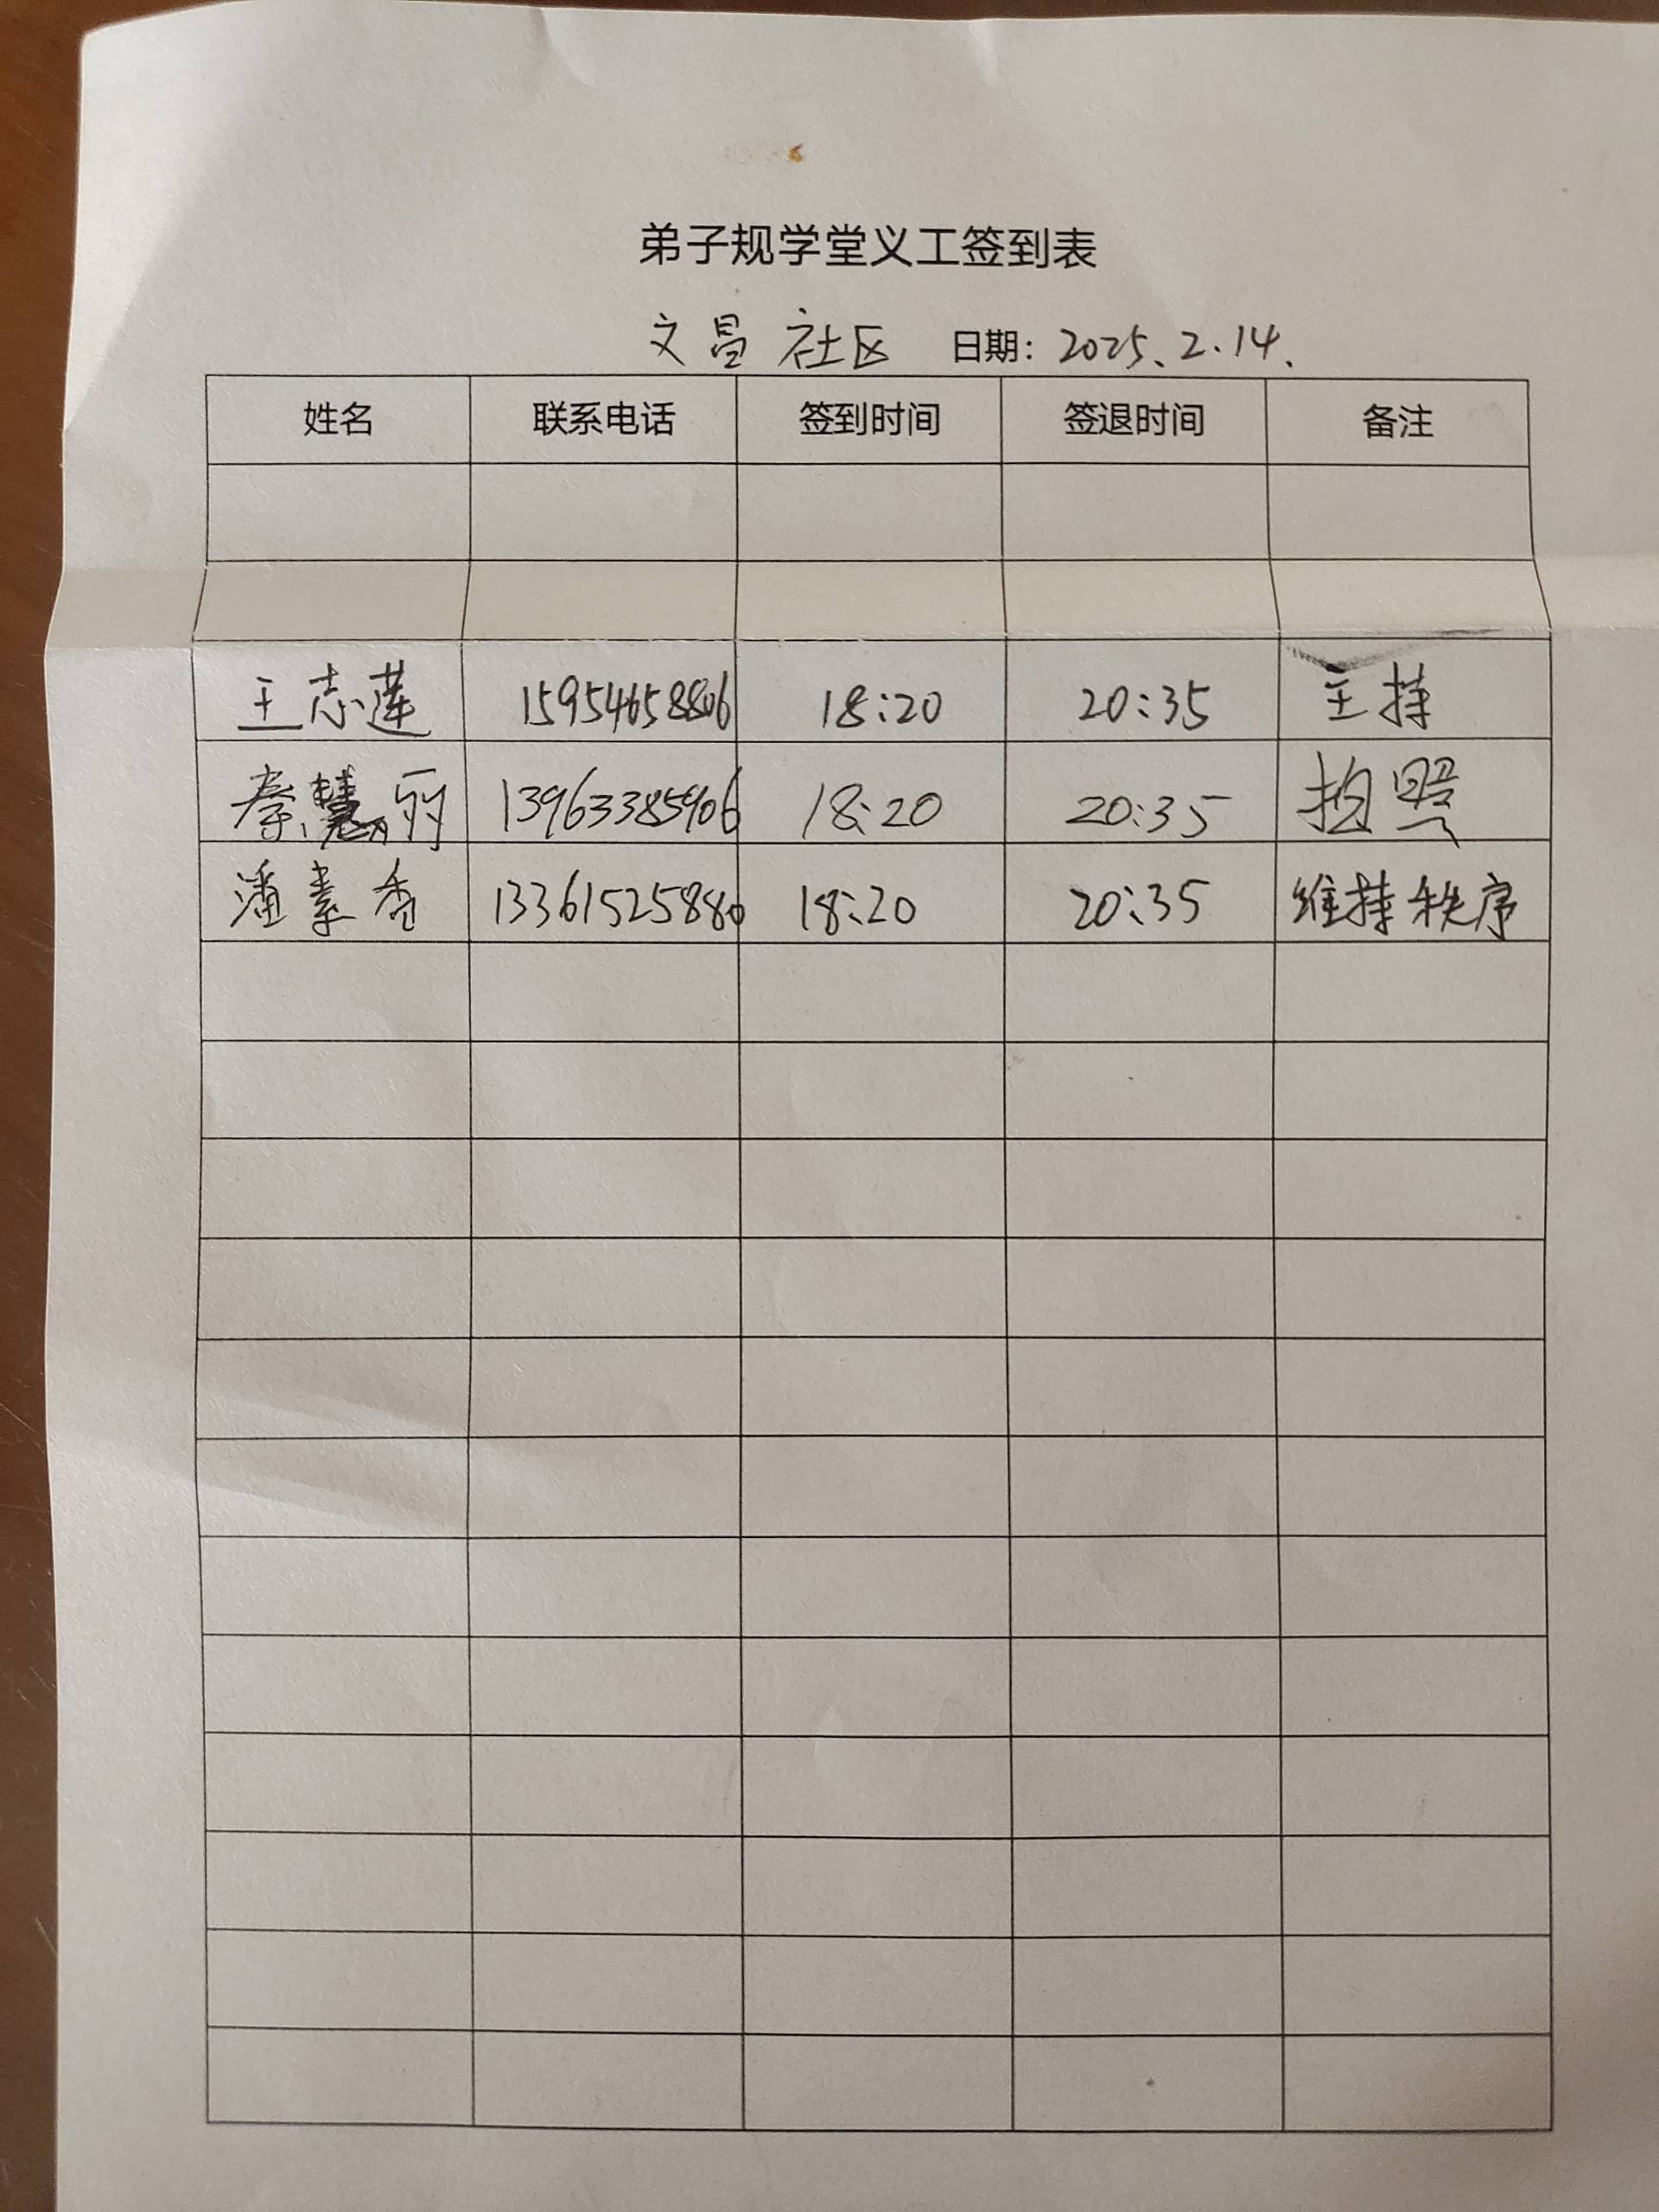 弟子规学堂义工签到表
文昌 社区 日期: 2025.2.14.
姓名 联系电话 签到时间 签退时间 备注
王志莲 15954658806 18:20 20:35 主持
秦慧丽 13963385906 18:20 20:35 拍照
潘素香 13361525880 18:20 20:35 维持秩序